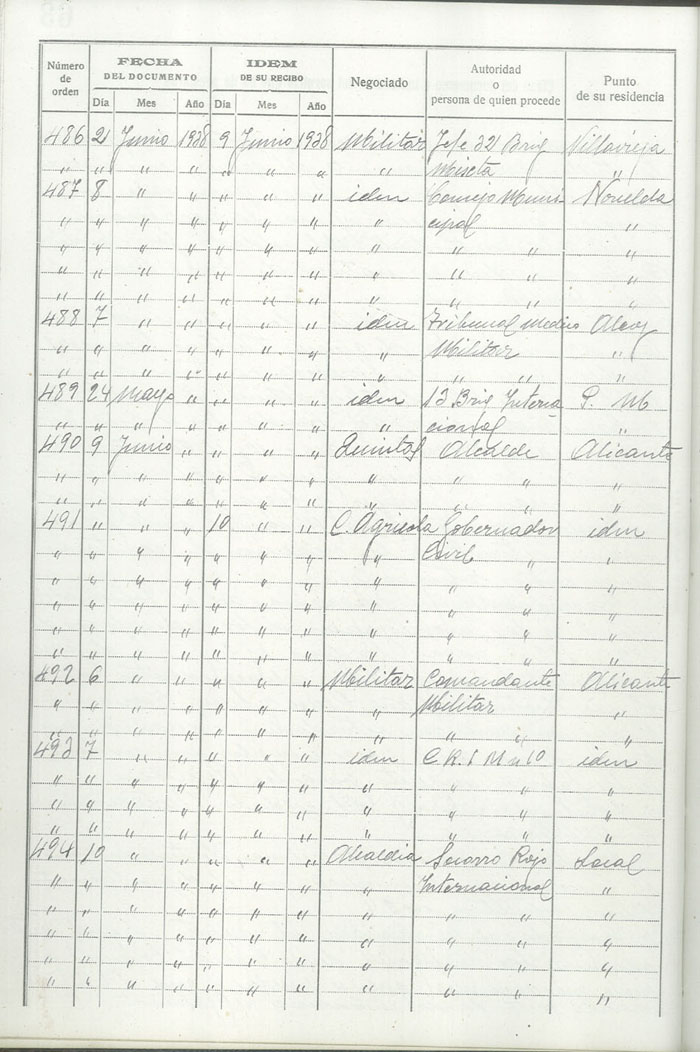 Número de orden | FECHA DEL DOCUMENTO | IDEM DE SU RECIBO | Negociado | Autoridad o persona de quien procede | Punto de su residencia
Día | Mes | Año | Día | Mes | Año
486 2 Junio 1938 9 Junio 1938 Militar Jefe 22 Brig Villavieja
" " " " " " " " Mixta "
487 8 " " " " " idem Consejo Muni Novelda
" " " " " " " " cipal "
" " " " " " " " " " "
" " " " " " " " " " "
" " " " " " " " " " "
488 7 " " " " " idem Tribunal Medico Alcoy
" " " " " " " " Militar "
" " " " " " " " " " "
489 24 Mayo " " " " idem 13 Brig Interna P. M
" " " " " " " " cional "
490 9 Junio " " " " Quintas Alcalde Alicante
" " " " " " " " " " "
" " " " " " " " " " "
491 " " " 10 " " C. Agricola Gobernador idem
" " " " " " " " Civil " "
" " " " " " " " " " "
" " " " " " " " " " "
" " " " " " " " " " "
" " " " " " " " " " "
492 6 " " " " " Militar Comandante Alicante
" " " " " " " " Militar "
" " " " " " " " " " "
493 7 " " " " " idem C. R. I M n 10 idem
" " " " " " " " " " "
" " " " " " " " " " "
" " " " " " " " " " "
494 10 " " " " " Alcaldia Socorro Rojo Local
" " " " " " " " Internacional "
" " " " " " " " " " "
" " " " " " " " " " "
" " " " " " " " " " "
" " " " " " " " " " "